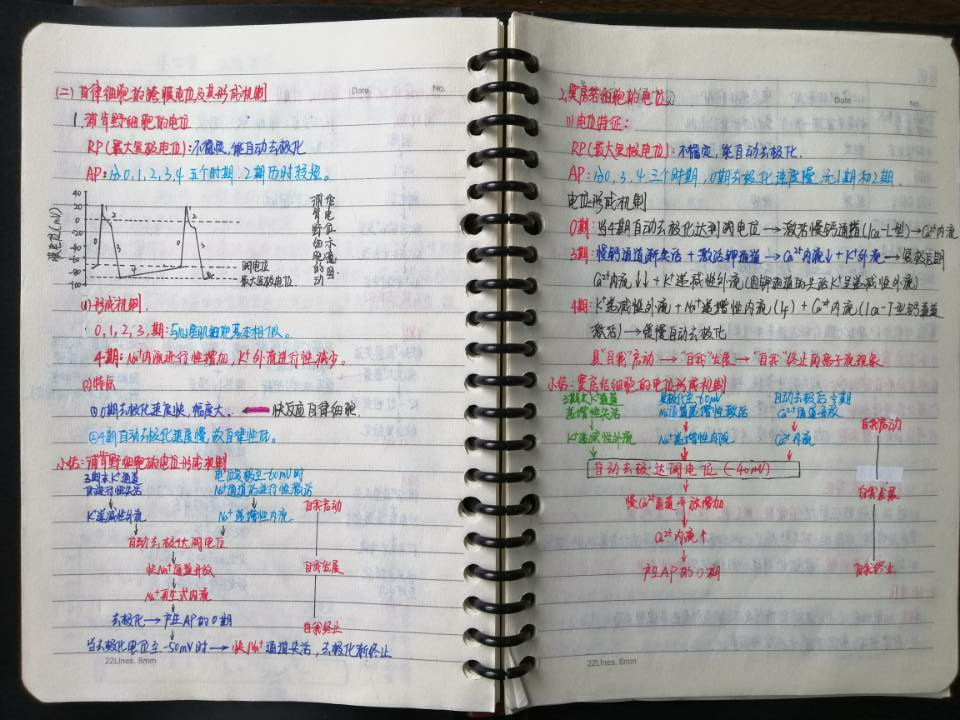 (二) 自律细胞的跨膜电位及其形成机制
Date No.
1. 浦肯野细胞的电位
RP(最大复极电位): 不稳定, 能自动去极化
AP: 分0, 1, 2, 3, 4 五个时期. 2期历时较短.
膜电位(mV)
40
20
0
阈电位
最大复极电位
(1) 形成机制
0, 1, 2, 3, 期: 与心室肌细胞基本相似.
4期: Na⁺内流进行性增加, K⁺外流进行性减少.
(2) 特点
①0期去极化速度快, 幅度大. ← 快反应自律细胞
②4期自动去极化速度慢, 故自律性低.
小结: 浦肯野细胞的电位形成机制
3期末K⁺通道 电位复极至-60mV时
进行性失活 Na⁺通道进行性激活
自我启动
K⁺递减性外流 Na⁺递增性内流
自动去极达阈电位
快Na⁺通道开放 自我发展
Na⁺再生式内流
去极化→产生AP的0期
自我终止
当去极化电位至-50mV时→快Na⁺通道失活, 去极化渐终止
22Lines. 6mm
2. 窦房结细胞的电位
Date No.
(1) 电位特征:
RP(最大复极电位): 不稳定, 能自动去极化.
AP: 分0, 3, 4 三个时期, 0期去极化速度慢, 无1期和2期.
电位形成机制
0期: 当4期自动去极化达到阈电位→激活慢钙通道(Ica-L型)→Ca²⁺内流
3期: 慢钙通道渐失活 + 激活钾通道→Ca²⁺内流↓ + K⁺外流→
Ca²⁺内流↓↓ + K⁺递减性外流(因钾通道的失活K⁺呈递减性外流)
4期: K⁺递减性外流 + Na⁺递增性内流(If) + Ca²⁺内流(Ica-T型钙通道
激活)→缓慢自动去极化
具"自我"启动→"自我"发展→"自我"终止的离子流现象
小结: 窦房结细胞的电位形成机制
3期末K⁺通道 复极化至-60mV 自动去极后
递增性失活 Na⁺通道递增性激活 Ca²⁺通道开放
自我启动
K⁺递减性外流 Na⁺递增性内流 Ca²⁺内流
自动去极达阈电位 (-40mV)
自我发展
慢Ca²⁺通道开放增加
Ca²⁺内流↑
产生AP的0期 自我终止
22Lines. 6mm